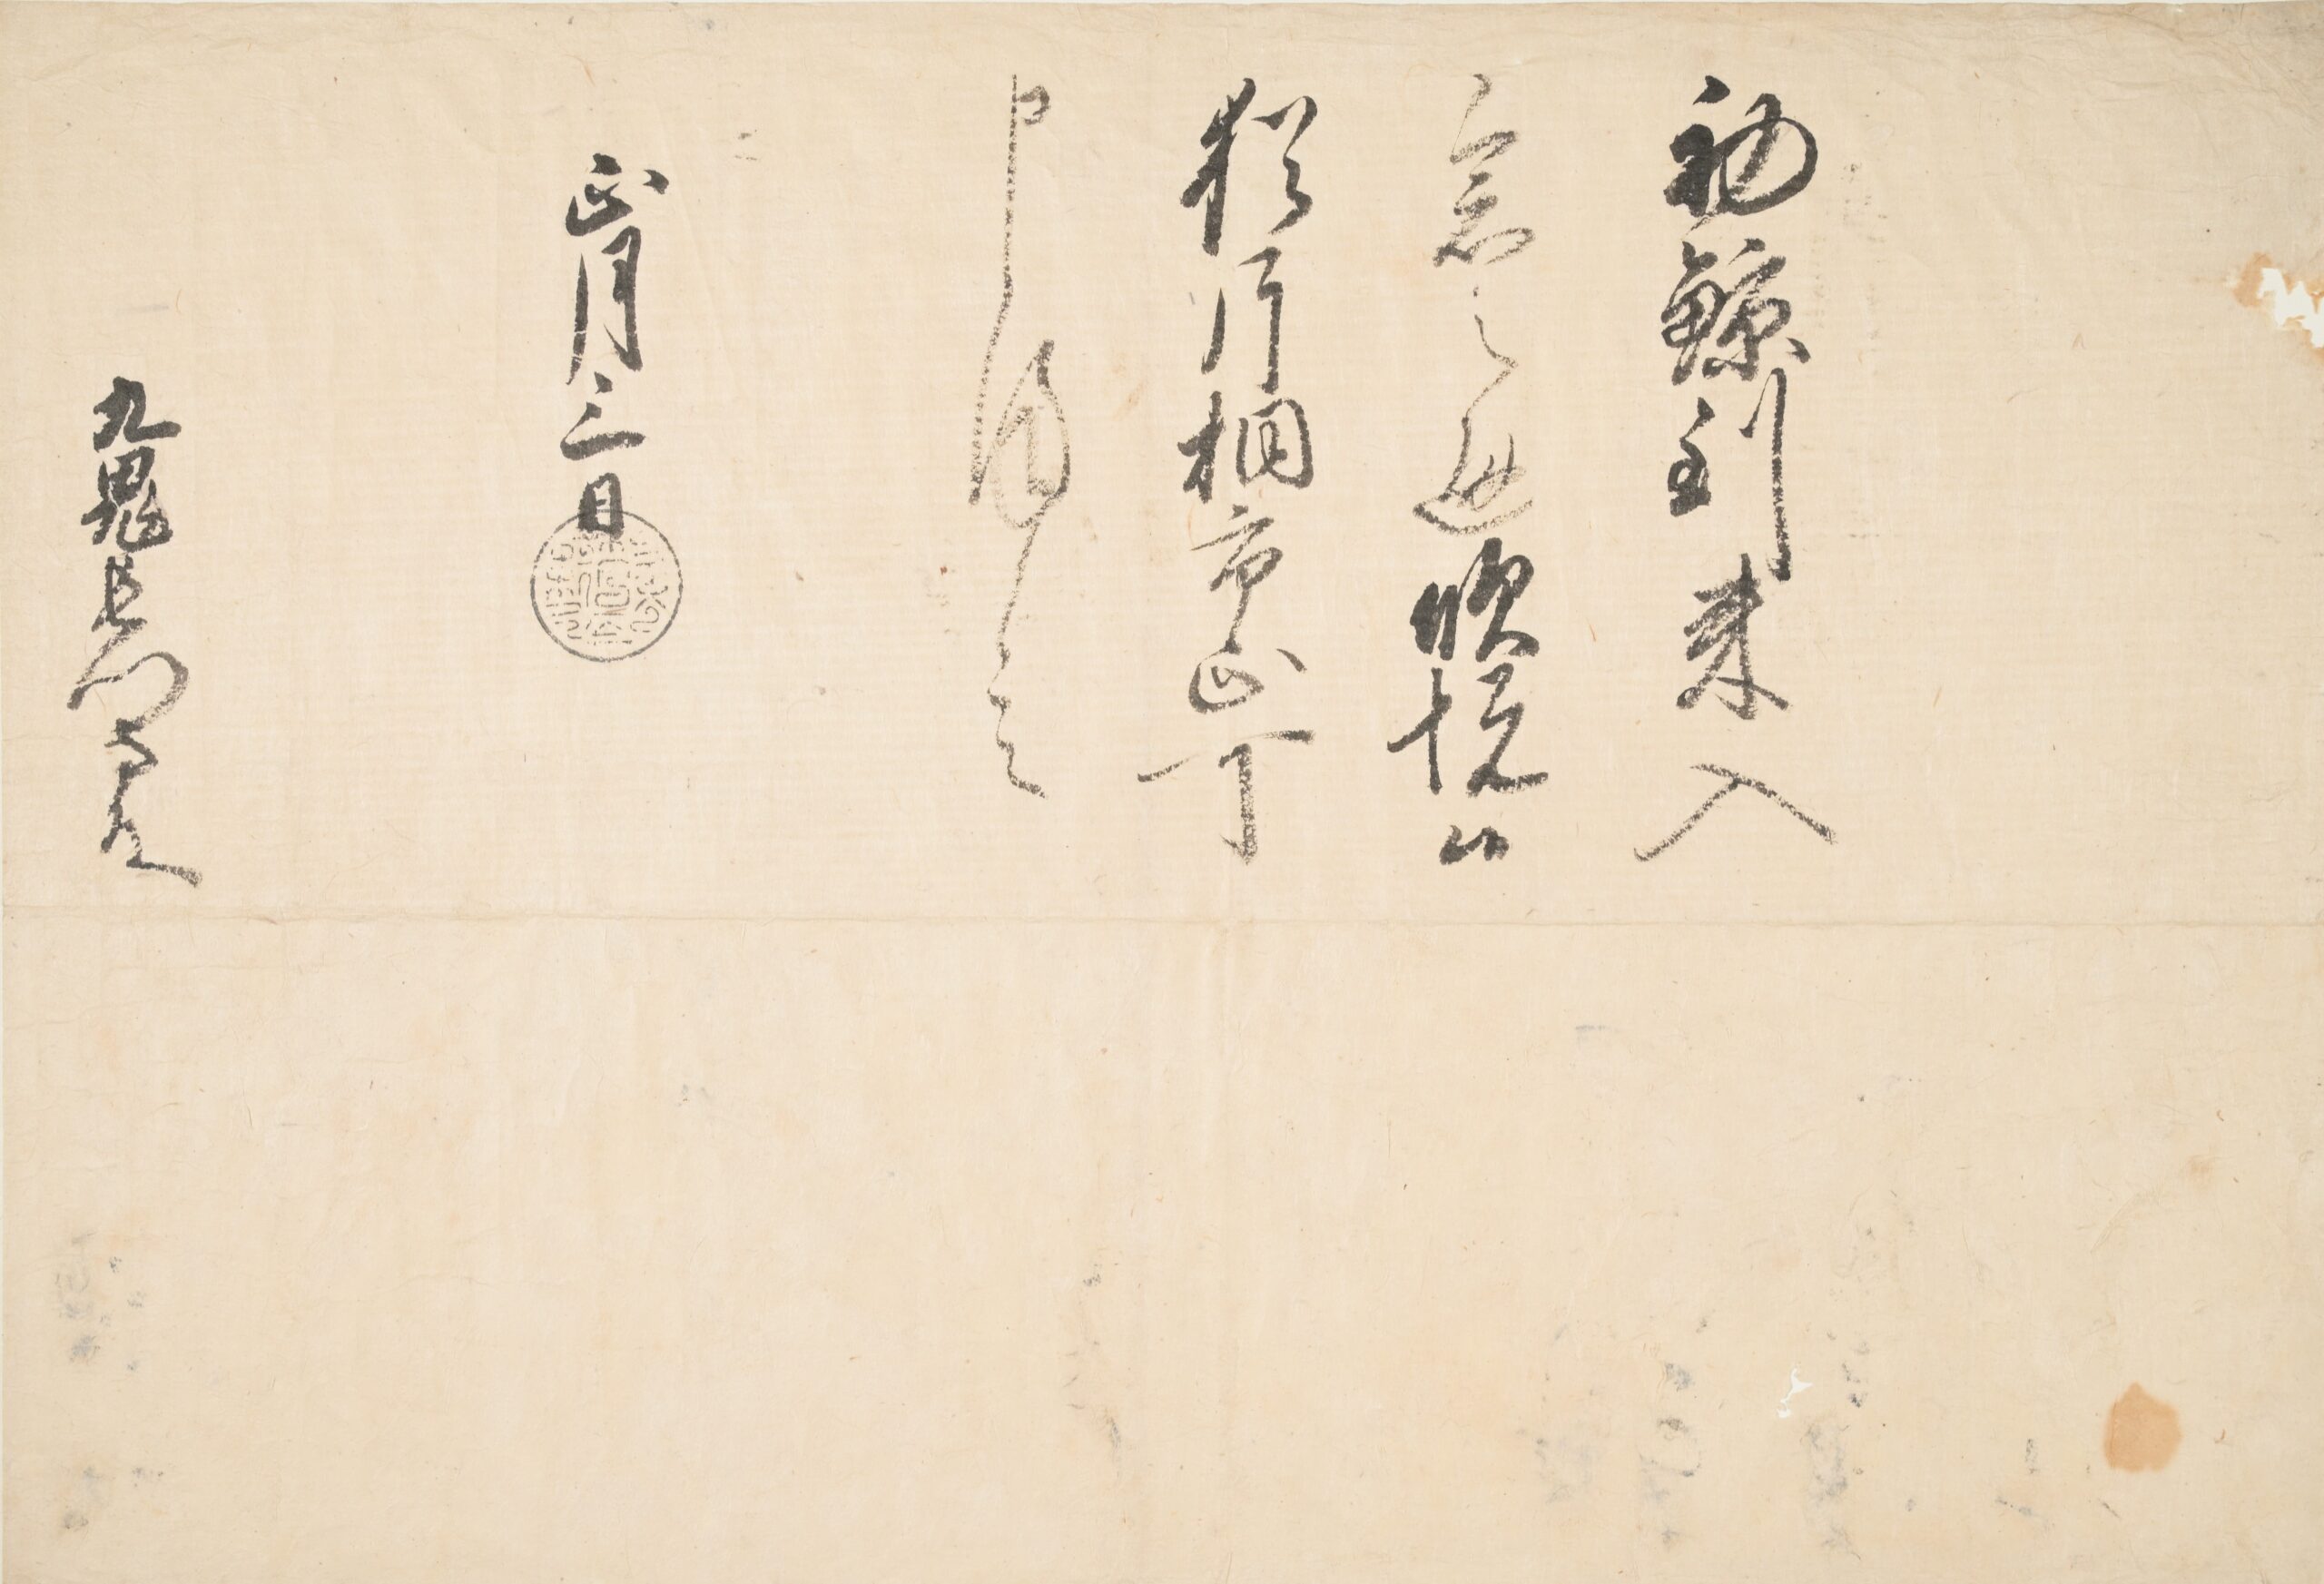 初鯨到来入
念之通悦悦候
猶片桐市正可
申候也
正月三日
九鬼長門守殿